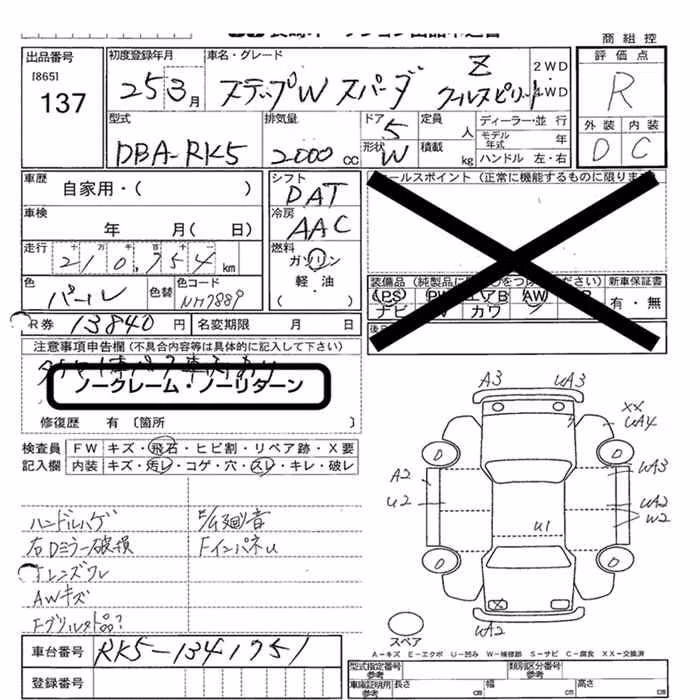 商 組 控
出品番号
[865]
137
初度登録年月
25 3 月
車名・グレード
ステップW スパーダ Z クールスピリット
2WD
4WD
評 価 点
R
外 装 内 装
D C
型式
DBA-RK5
排気量
2000 cc
ドア
5
形状
W
定員 人
積載 kg
ディーラー・並 行
モデル年式 年
ハンドル 左・右
車歴
自家用・( )
車検
年 月( 日)
走行
十 万 千 百 十 一
210,754 km
色
パール
色替
色コード
NH788P
シフト
DAT
冷房
AAC
燃料
ガソリン
軽 油
( )
セールスポイント (正常に機能するものに限ります)
装備品
(PS) PW エアB AW
ナビ カワ
新車保証書
有・無
R券 13840 円
名変期限 月 日
注意事項申告欄 (不具合内容等は具体的に記入して下さい)
ノークレーム・ノーリターン
修復歴 有 〔箇所 〕
検査員
記入欄
FW キズ・飛石・ヒビ割・リペア跡・X要
内装 キズ・汚レ・コゲ・穴・スレ・キレ・破レ
ハンドルハゲ
右Dミラー破損
Fレンズワレ
AWキズ
FインパネU
A3 UA3
XX
UA4
UA3
A2
U2
UA2
W2
U1
UA2
スペア
A－キズ E－エクボ U－凹み W－補修跡 S－サビ C－腐食 XX－交換済
車台番号
RK5-1341751
登録番号
型式指定番号
参考
類別区分番号
参考
車庫証明用
参考
長さ cm
幅 cm
高さ cm